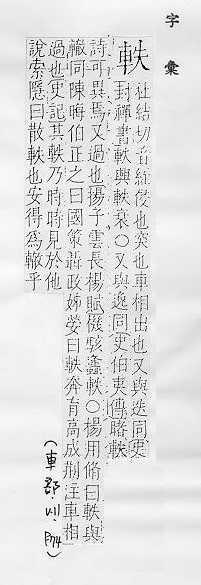 字彙
軼
杜結切音絰侵也突也車相出也又與迭同史
封禪書軼興軼衰○又與逸同史伯夷傳睹軼
詩可異焉又過也揚子雲長楊賦儗駭蠭軼○楊用脩曰軼與
轍同陳晦伯正之曰國策聶政姊嫈曰軼奔育高成荊注車相
過也史記其軼乃時時見於他
說索隱曰散軼也安得為轍乎
(車部